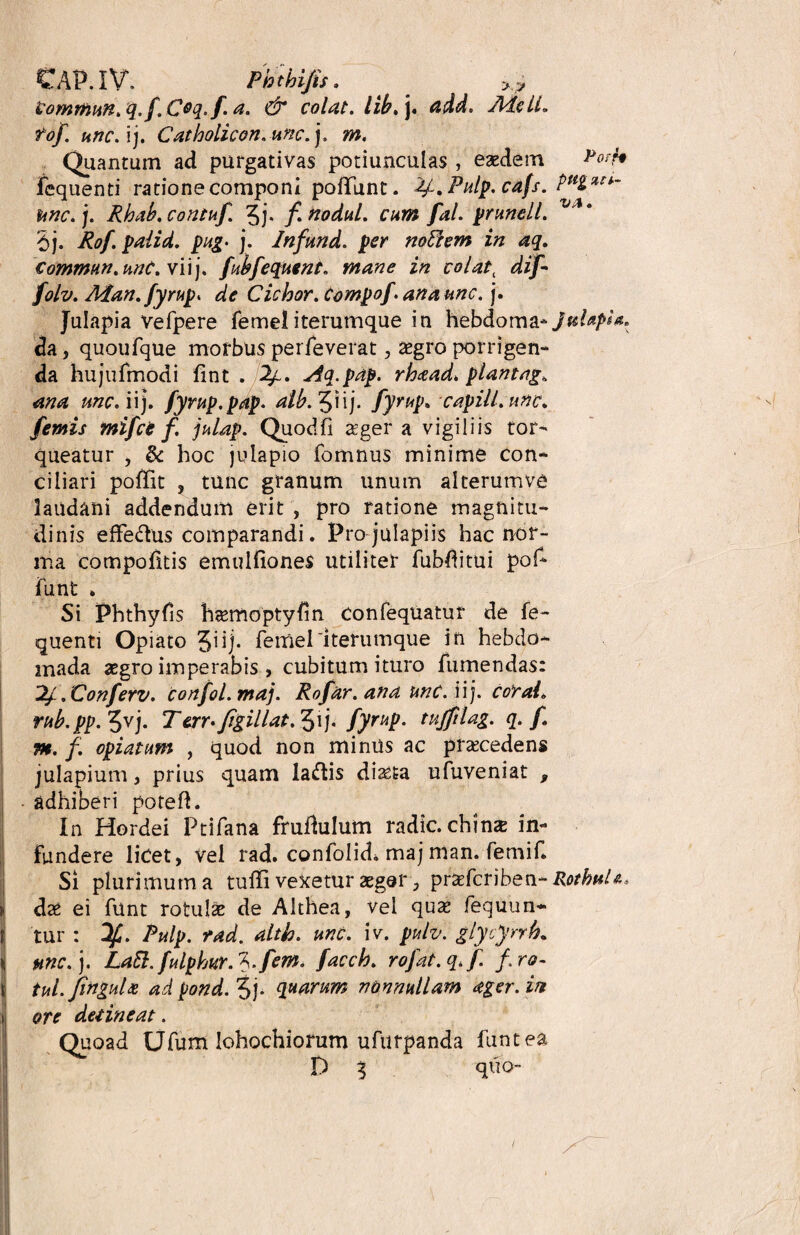 CAP. IV. Phthiſis.
commun. q. ſ. Coq. ſ. a. & colat. lib. j. add. Mell.
roſ. unc. ij. Catholicon. unc. j. m.
Quantum ad purgativas potiunculas, eædem
ſequenti ratione componi poſſunt. ℞. Pulp. caſs.
unc. j. Rhab. contuſ. ʒj. ſ. nodul. cum ſal. prunell.
ʒj. Roſ. palid. pug. j. Infund. per noctem in aq.
commun. unc. viij. ſubſequent. mane in colat. diſ-
ſolv. Man. ſyrup. de Cichor. compoſ. ana unc. j.
Julapia veſpere ſemel iterumque in hebdoma- Julapia.
da, quouſque morbus perſeverat, ægro porrigen-
da hujuſmodi ſint. ℞. Aq. pap. rhæad. plantag.
ana unc. iij. ſyrup. pap. alb. ʒiij. ſyrup. capill. unc.
ſemis miſce f. julap. Quodſi æger a vigiliis tor-
queatur, & hoc julapio ſomnus minime con-
ciliari poſſit, tunc granum unum alterumve
laudani addendum erit, pro ratione magnitu-
dinis effectus comparandi. Pro julapiis hac nor-
ma compoſitis emulſiones utiliter ſubſtitui poſ-
ſunt.
Si Phthyſis hæmoptyſin conſequatur de ſe-
quenti Opiato ʒiij. ſemel iterumque in hebdo-
mada ægro imperabis, cubitum ituro ſumendas:
℞. Conſerv. conſol. maj. Roſar. ana unc. iij. coral.
rub. pp. ʒvj. Terr. ſigillat. ʒij. ſyrup. tuſſilag. q. ſ.
m. f. opiatum, quod non minus ac præcedens
julapium, prius quam lactis diæta uſuveniat,
adhiberi poteſt.
In Hordei Ptiſana fruſtulum radic. chinæ in-
fundere licet, vel rad. conſolid. maj man. ſemiſ.
Si plurimum a tuſſi vexetur æger, præſcriben- Rothulæ.
dæ ei ſunt rotulæ de Althea, vel quæ ſequun-
tur: ℞. Pulp. rad. alth. unc. iv. pulv. glycyrrh.
unc. j. Lact. ſulphur. ʒ. ſem. ſacch. roſat. q. ſ. f. ro-
tul. ſingulæ ad pond. ʒj. quarum nonnullam æger. in
ore detineat.
Quoad Uſum lohochiorum uſurpanda ſunt ea
D 3 quo-